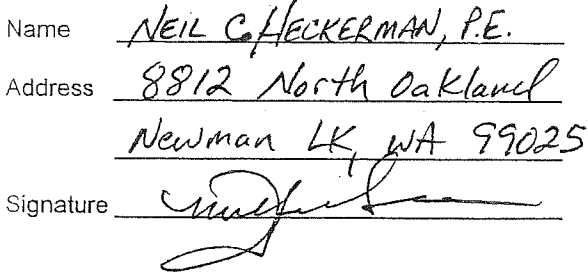 Name NEIL C. HECKERMAN, P.E.
Address 8812 North Oakland
Newman LK, WA 99025
Signature